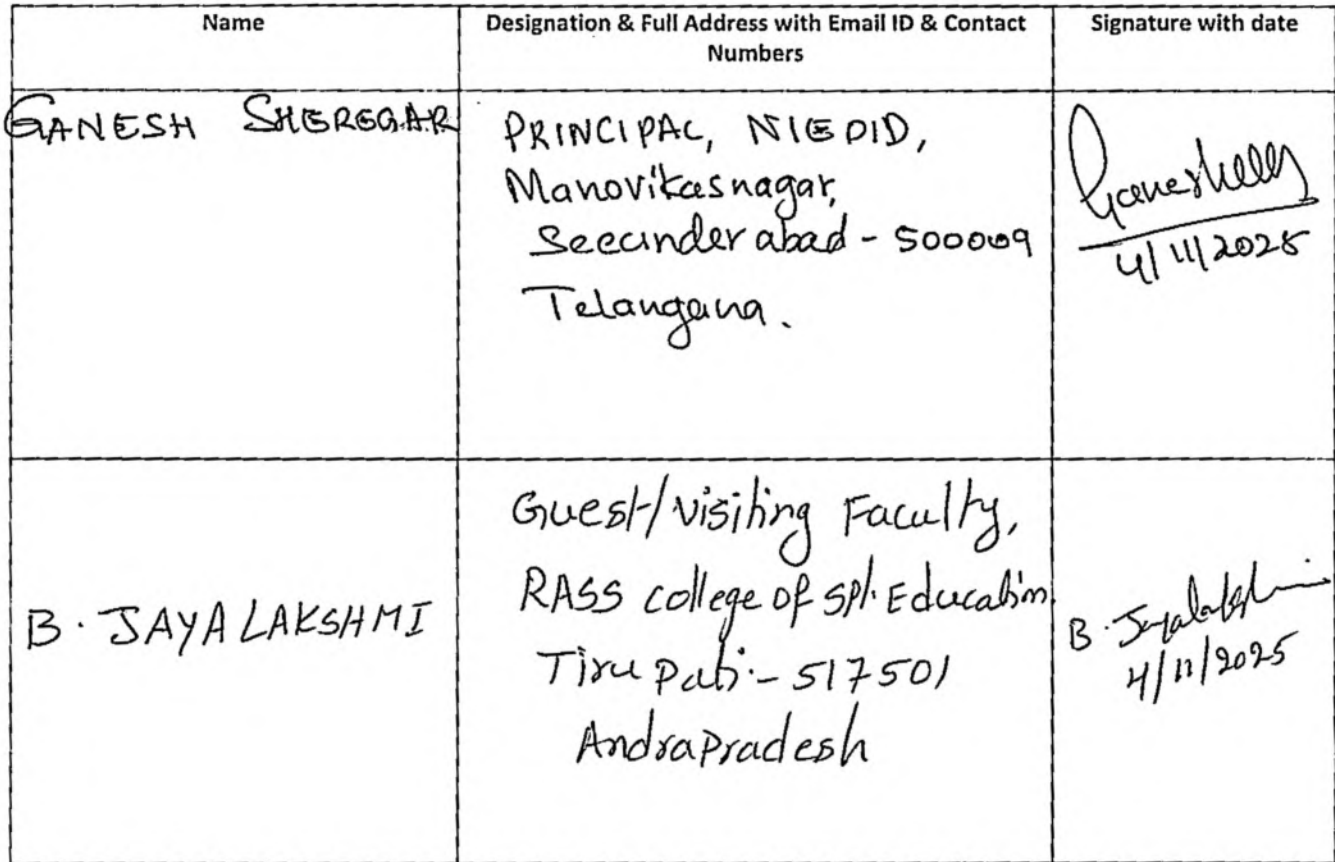 Name
Designation & Full Address with Email ID & Contact
Numbers
Signature with date
GANESH SHEREGAR
PRINCIPAL, NIEPID,
Manovikasnagar,
Secunderabad - 500009
Telangana.
4/11/2025
B. JAYALAKSHMI
Guest/Visiting Faculty,
RASS college of spl. Education
Tirupati - 517501
AndraPradesh
B. Jayalakshmi
4/11/2025